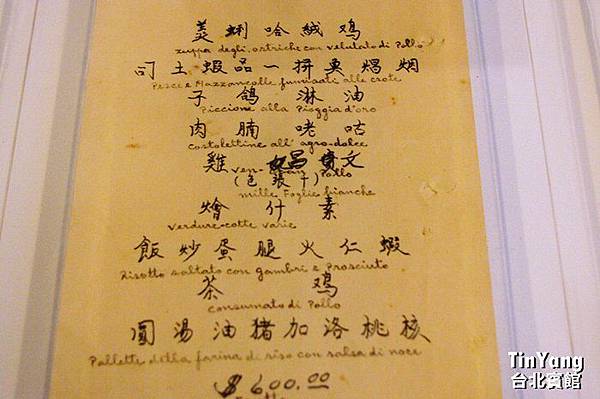 鸡絨哈蜊羹
zuppa degli ostriche con velutato di Pollo
烟焗魚拼一品蝦土司
Pesce e Mazzancolle fumicati alle crote
油淋鴿子
Piccione alla Pioggia d'oro
咕咾腩肉
costolettine all' agro-dolce
文昌雞
Pollo
(千張包)
mille Foglie bianche
素什燴
verdure cotte varie
蝦仁火腿蛋炒飯
Risotto saltato con gambri e Prosciuto
鸡茶
consumato di Pollo
核桃洛加猪油湯圓
Pallette della farina di riso con salsa di noce
$600.00
TinYang
台北賓館